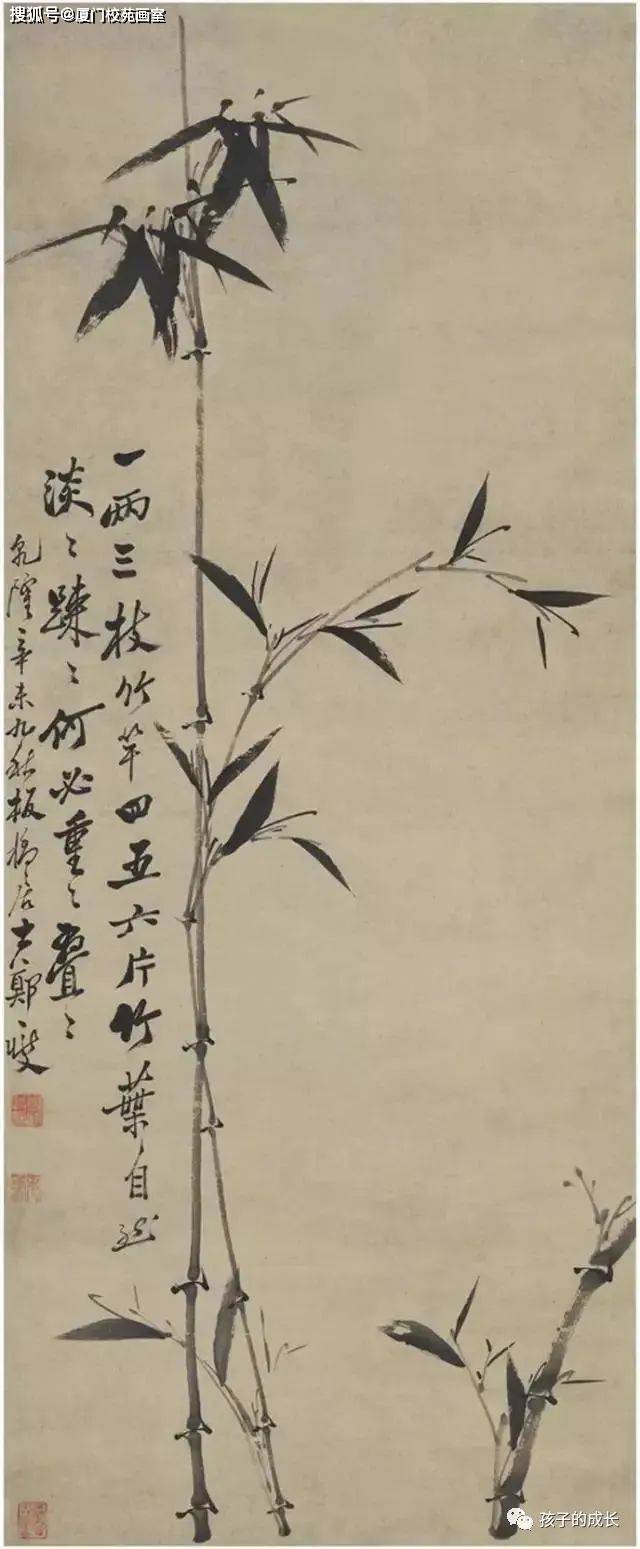 搜狐号@厦门校苑画室
一两三枝竹竿四五六片竹葉自然
淡〻疎〻何必重〻疊〻
乾隆辛未九秋板橋居士鄭燮
孩子的成长